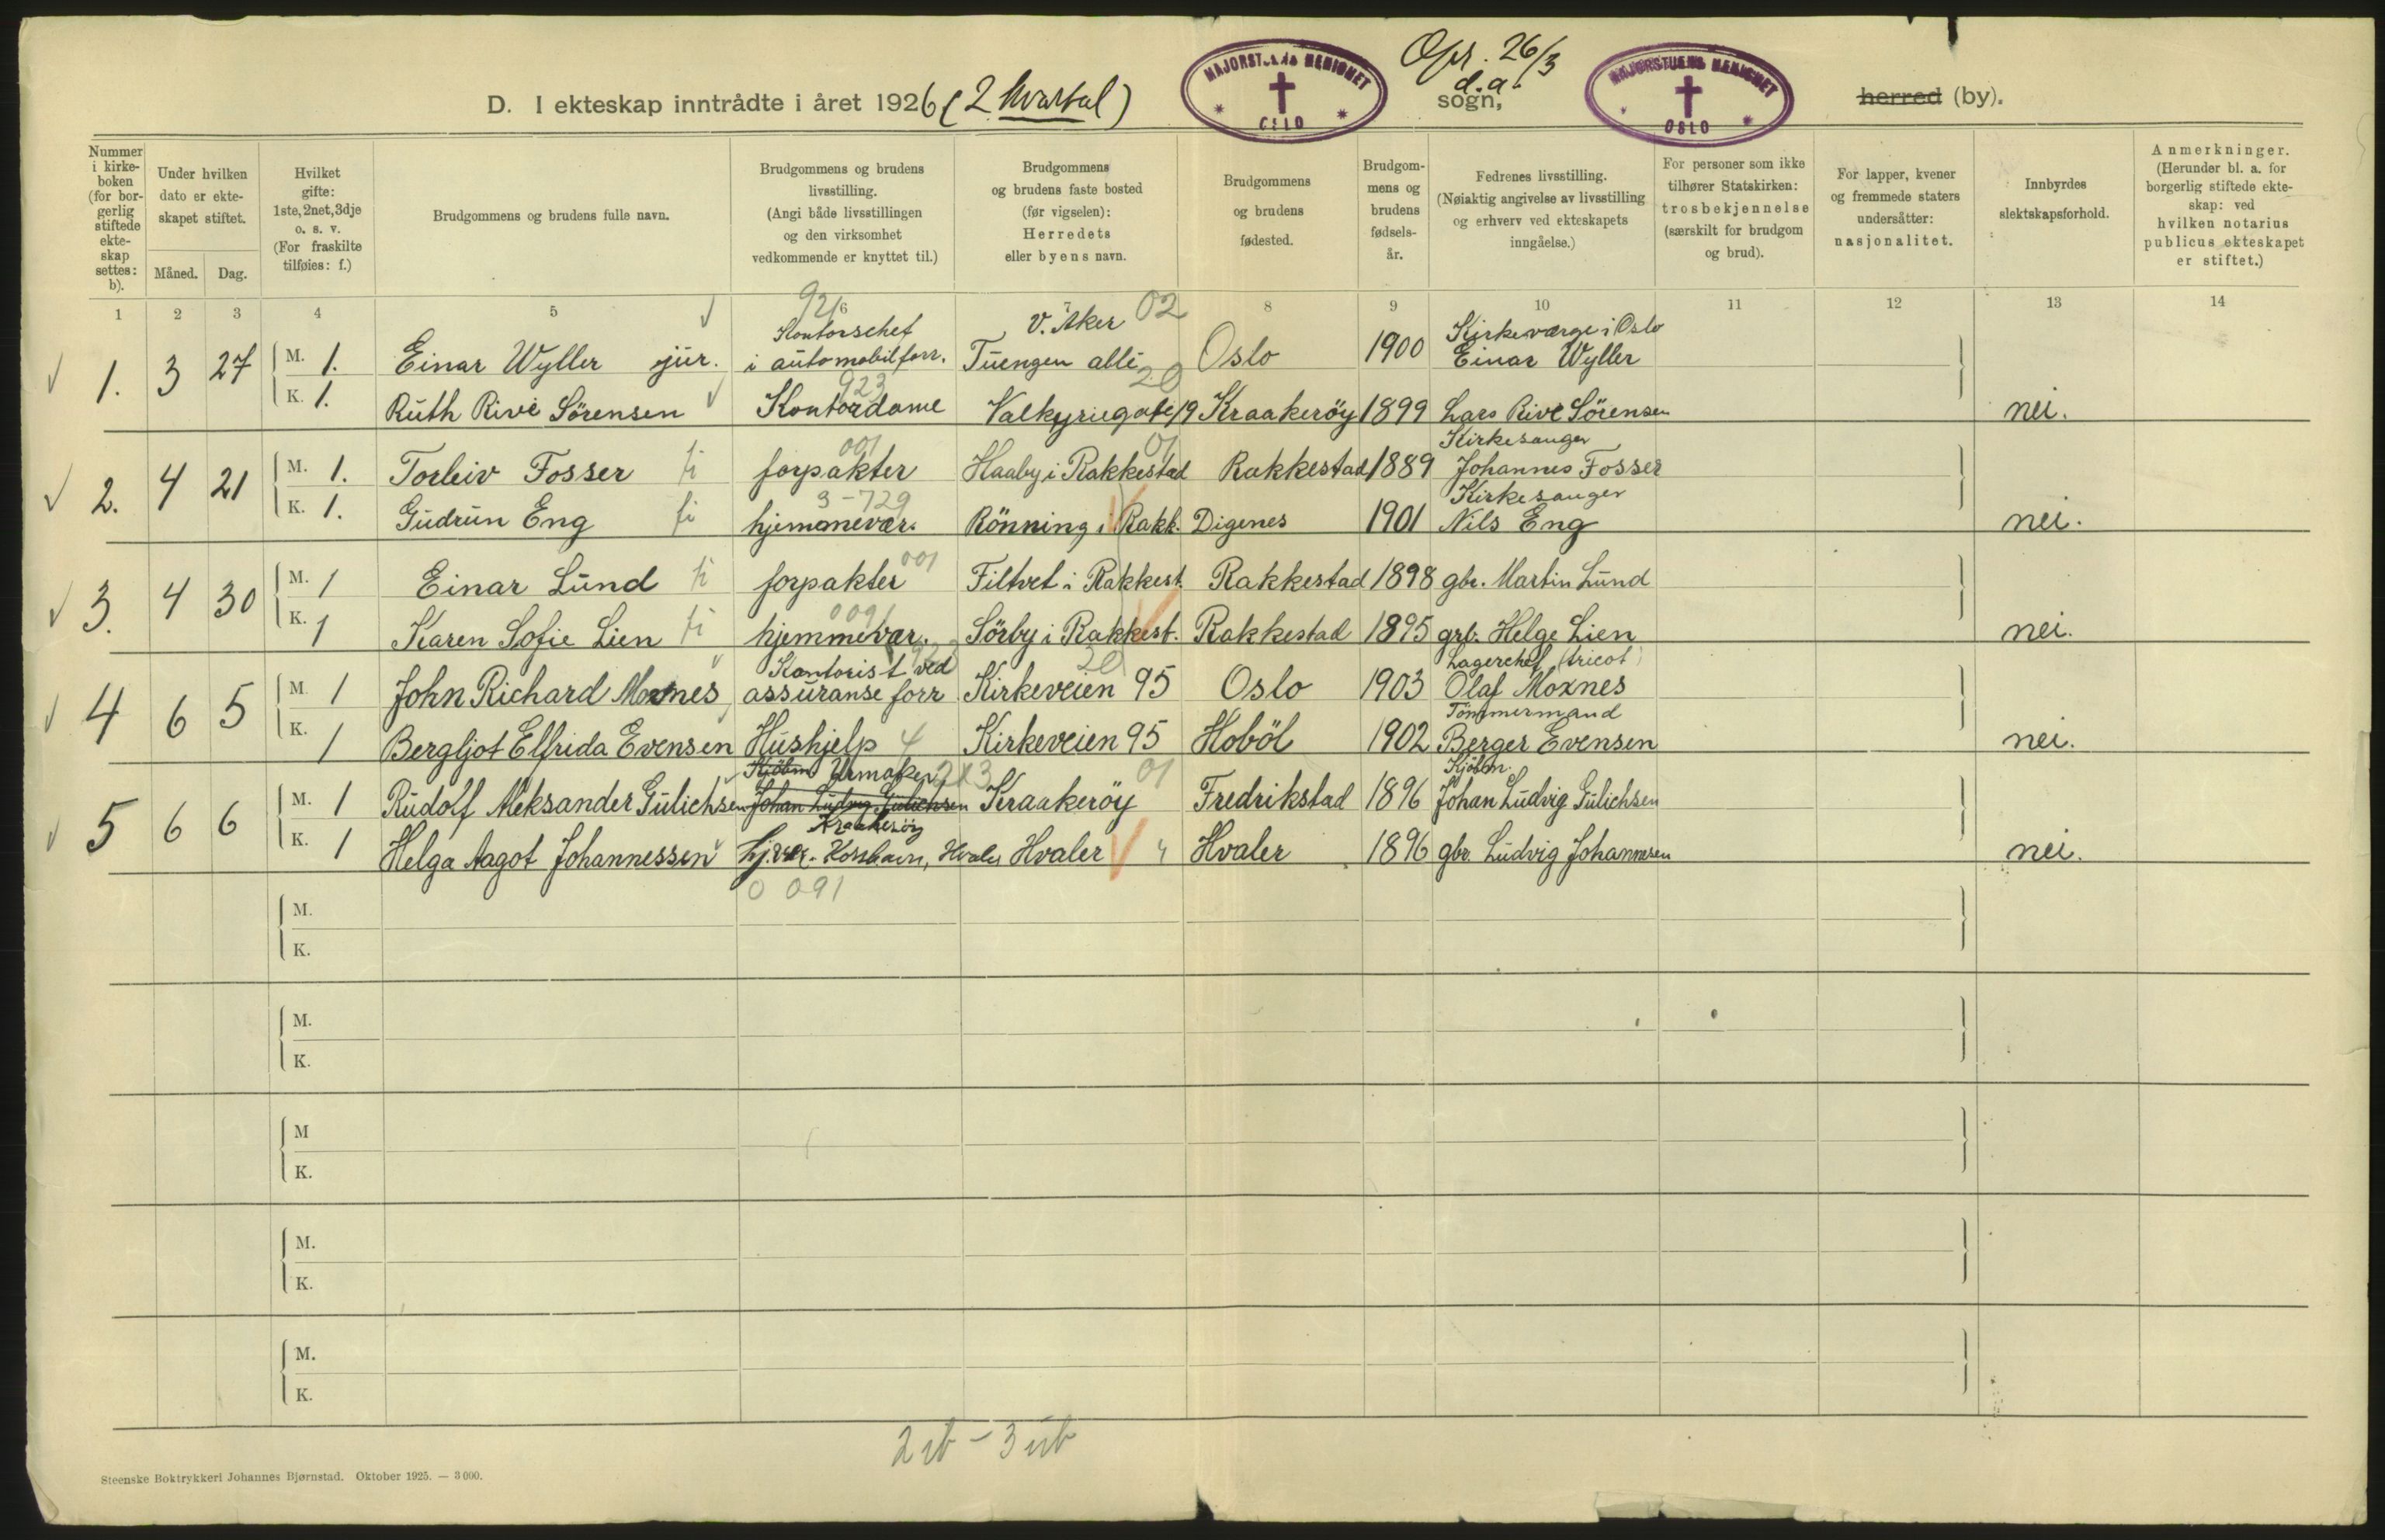 D. I ekteskap inntrådte i året 1926 (2 kvartal)
MAJORSTUENS MENIGHET
OSLO
26/3
d.a.
sogn,
MAJORSTUENS MENIGHET
OSLO
herred (by).
Nummer i kirke-boken (for bor-gerlig stiftede ekte-skap settes: b).
Under hvilken dato er ekte-skapet stiftet.
Måned. Dag.
Hvilket gifte: 1ste, 2net, 3dje o. s. v. (For fraskilte tilføies: f.)
Brudgommens og brudens fulle navn.
Brudgommens og brudens livsstilling. (Angi både livsstillingen og den virksomhet vedkommende er knyttet til.)
Brudgommens og brudens faste bosted (før vigselen): Herredets eller byens navn.
Brudgommens og brudens fødested.
Brudgom-mens og brudens fødsels-år.
Fedrenes livsstilling. (Nøiaktig angivelse av livsstilling og erhverv ved ekteskapets inngåelse.)
For personer som ikke tilhører Statskirken: trosbekjennelse (særskilt for brudgom og brud).
For lapper, kvener og fremmede staters undersåtter: nasjonalitet.
Innbyrdes slektskapsforhold.
Anmerkninger. (Herunder bl. a. for borgerlig stiftede ekte-skap: ved hvilken notarius publicus ekteskapet er stiftet.)
1 2 3 4 5 6 7 8 9 10 11 12 13 14
921 02
Kontorschef V. Aker Kirkeværge i Oslo
1. 3 27 M. 1. Einar Wyller jur. i automobilforr. Tuengen allé Oslo 1900 Einar Wyller
923 20
K. 1. Ruth Rive Sörensen Kontordame Valkyriegate 19 Kraakeröy 1899 Lars Rive Sörensen nei.
001 01 Kirkesanger
2. 4 21 M. 1. Torleiv Fosser forpakter Haaby i Rakkestad Rakkestad 1889 Johannes Fosser
3-729 Kirkesanger
K. 1. Gudrun Eng hjemmevær. Rönning i Rakk. Digenes 1901 Nils Eng nei.
001
3. 4 30 M. 1 Einar Lund forpakter Filtvet i Rakkest. Rakkestad 1898 gbr. Martin Lund
0091
K. 1 Karen Sofie Lien hjemmevær. Sörby i Rakkest. Rakkestad 1895 grb. Helge Lien nei.
Kontorist ved 20 Lagerchef (tricot)
4 6 5 M. 1 John Richard Moxnes assuranse forr Kirkeveien 95 Oslo 1903 Olaf Moxnes
Tömmermand
K. 1 Bergljot Elfrida Evensen Hushjelp 4 Kirkeveien 95 Hoböl 1902 Berger Evensen nei.
Kjöbm Urmaker 01 Kjöbm.
5 6 6 M. 1 Rudolf Aleksander Gulichsen Johan Ludvig Gulichsen Kraakeröy Fredrikstad 1896 Johan Ludvig Gulichsen
Kraakeröy
K. 1 Helga Aagot Johannessen hj.vær. Hvaler Hvaler Hvaler 1896 gbr. Ludvig Johannesen nei.
0 091
M.
K.
M.
K.
M
K.
M.
K.
M.
K.
Steenske Boktrykkeri Johannes Bjørnstad. Oktober 1925. — 3 000.